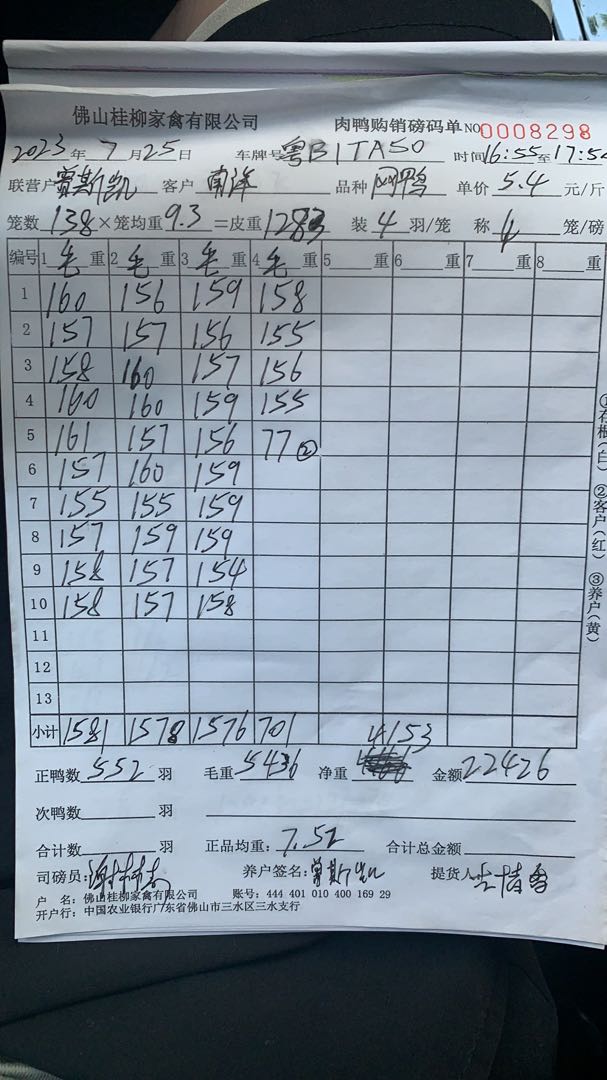 佛山桂柳家禽有限公司 肉鸭购销磅码单 NO 0008298
2023年 7月25日 车牌号 粤B1TA50 时间 16:55至17:54
联营户 曾斯凯 客户 南洋 品种 网鸭 单价 5.4 元/斤
笼数 138 ×笼均重 9.3 =皮重 1283 装 4 羽/笼 称 4 笼/磅
编号 1 毛 重 2 毛 重 3 毛 重 4 毛 重 5 重 6 重 7 重 8 重
1 160 156 159 158
2 157 157 156 155
3 158 160 157 156
4 160 160 159 155
5 161 157 156 77②
6 157 160 159
7 155 155 159
8 157 159 159
9 158 157 154
10 158 157 158
11
12
13
小计 1581 1578 1576 701 4153
正鸭数 552 羽 毛重 5436 净重 金额 22426
次鸭数 羽
合计数 羽 正品均重: 7.52 合计总金额
司磅员: 养户签名: 曾斯凯 提货人
户 名: 佛山桂柳家禽有限公司 账号: 444 401 010 400 169 29
开户行: 中国农业银行广东省佛山市三水区三水支行
①存根(白) ②客户(红) ③养户(黄)